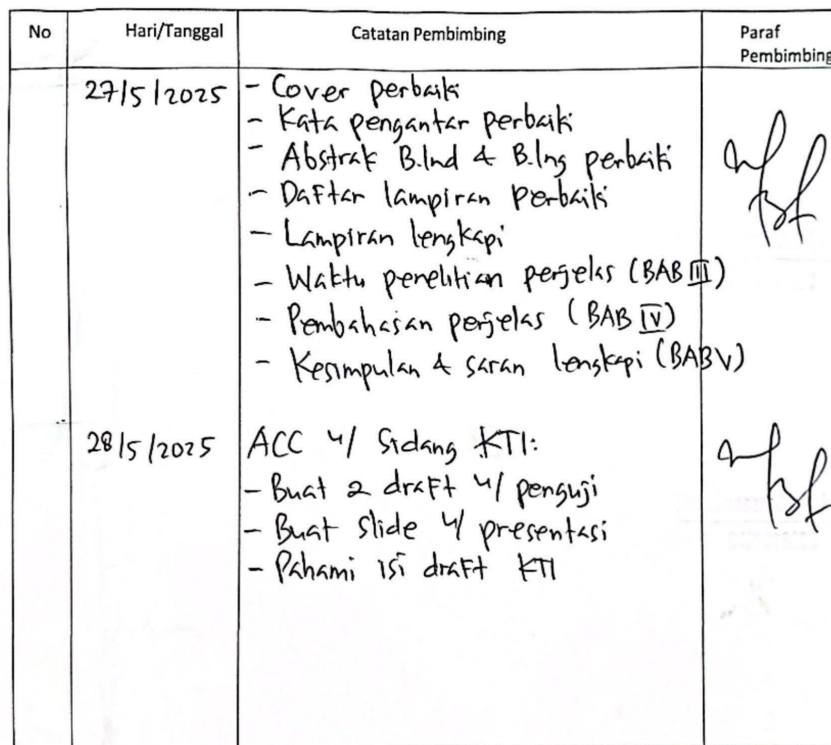 No Hari/Tanggal Catatan Pembimbing Paraf
Pembimbing
27/5/2025 - Cover perbaiki
- Kata pengantar perbaiki
- Abstrak B.Ind & B.Ing perbaiki
- Daftar lampiran perbaiki
- Lampiran lengkapi
- Waktu penelitian perjelas (BAB III)
- Pembahasan perjelas (BAB IV)
- Kesimpulan & saran lengkapi (BAB V)
28/5/2025 ACC u/ Sidang KTI:
- Buat 2 draft u/ penguji
- Buat slide u/ presentasi
- Pahami isi draft KTI